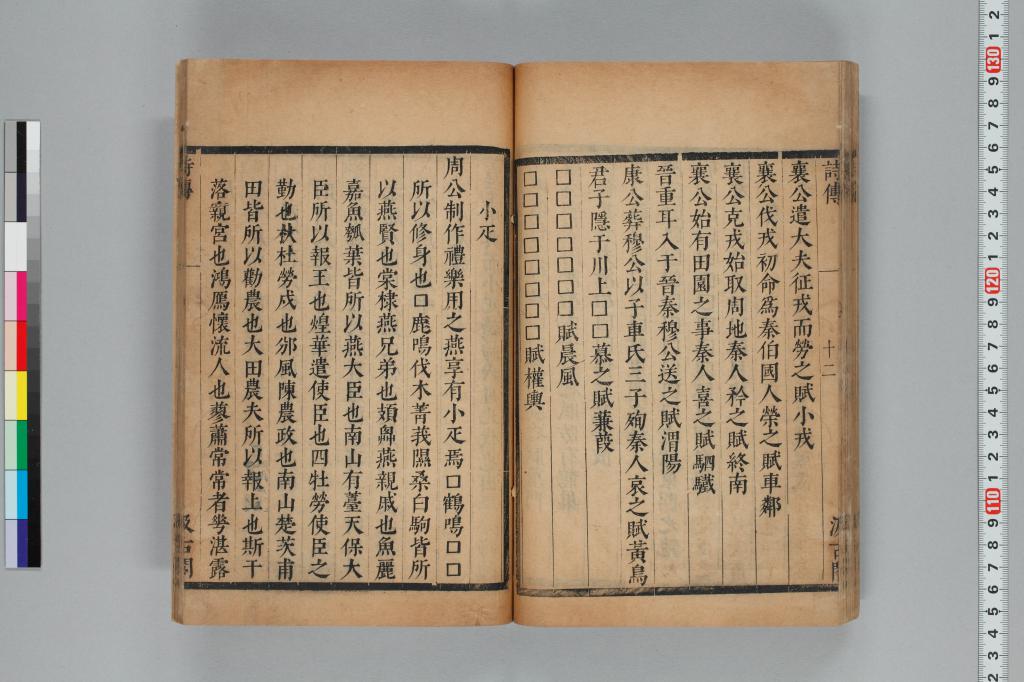 詩傳
十二
汲古閣
襄公遣大夫征戎而勞之賦小戎
襄公伐戎初命爲秦伯國人榮之賦車鄰
襄公克戎始取周地秦人矜之賦終南
襄公始有田園之事秦人喜之賦駟驖
晉重耳入于晉秦穆公送之賦渭陽
康公葬穆公以子車氏三子殉秦人哀之賦黃鳥
君子隱于川上□□慕之賦蒹葭
□□□□□□□賦晨風
□□□□□□□□賦權輿
小疋
周公制作禮樂用之燕享有小疋焉□鶴鳴□□
所以修身也□鹿鳴伐木菁莪隰桑白駒皆所
以燕賢也棠棣燕兄弟也頍弁燕親戚也魚麗
嘉魚瓠葉皆所以燕大臣也南山有薹天保大
臣所以報王也煌華遣使臣也四牡勞使臣之
勤也杕杜勞戍也邠風陳農政也南山楚茨甫
田皆所以勸農也大田農夫所以報上也斯干
落寢宮也鴻鴈懷流人也蓼蕭常常者華湛露
詩傳
汲古閣
130
120
110